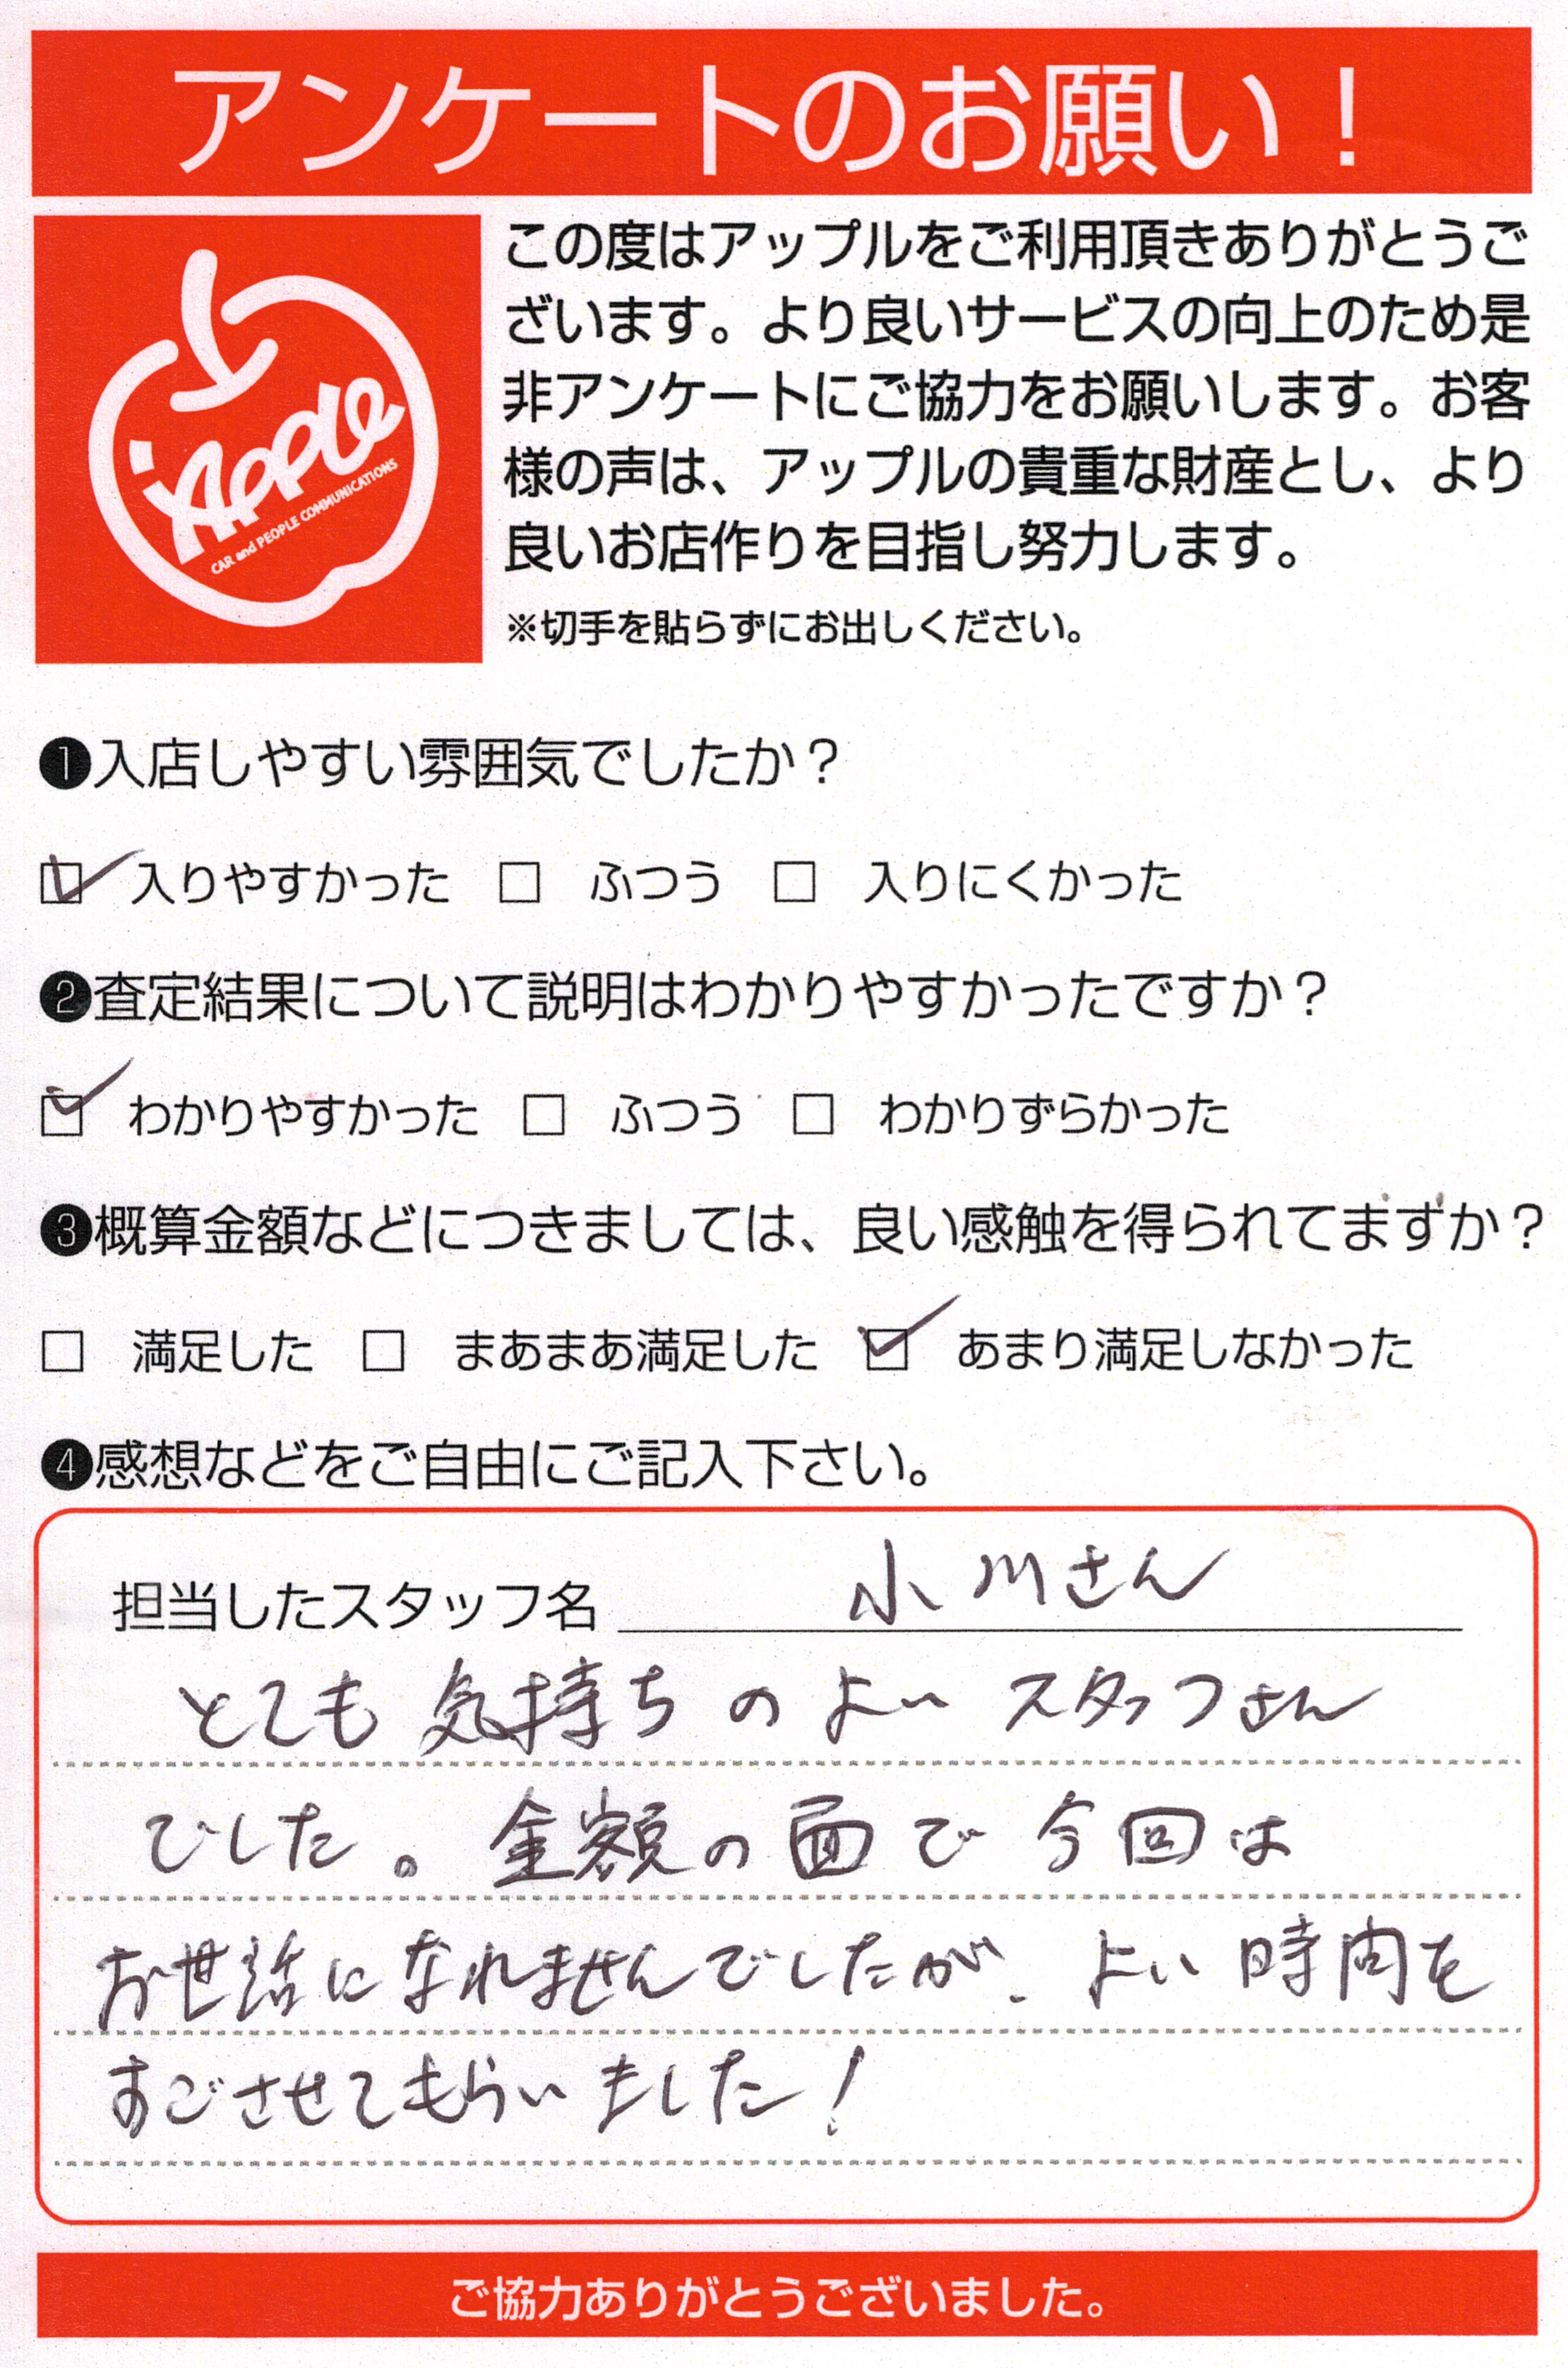 アンケートのお願い！
Apple
CAR and PEOPLE COMMUNICATIONS
この度はアップルをご利用頂きありがとうご
ざいます。より良いサービスの向上のため是
非アンケートにご協力をお願いします。お客
様の声は、アップルの貴重な財産とし、より
良いお店作りを目指し努力します。
※切手を貼らずにお出しください。
❶入店しやすい雰囲気でしたか？
☑ 入りやすかった □ ふつう □ 入りにくかった
❷査定結果について説明はわかりやすかったですか？
☑ わかりやすかった □ ふつう □ わかりずらかった
❸概算金額などにつきましては、良い感触を得られてますか？
□ 満足した □ まあまあ満足した ☑ あまり満足しなかった
❹感想などをご自由にご記入下さい。
担当したスタッフ名 小川さん
とても気持ちのよいスタッフさん
でした。金額の面で今回は
お世話になれませんでしたが、よい時間を
すごさせてもらいました！
ご協力ありがとうございました。